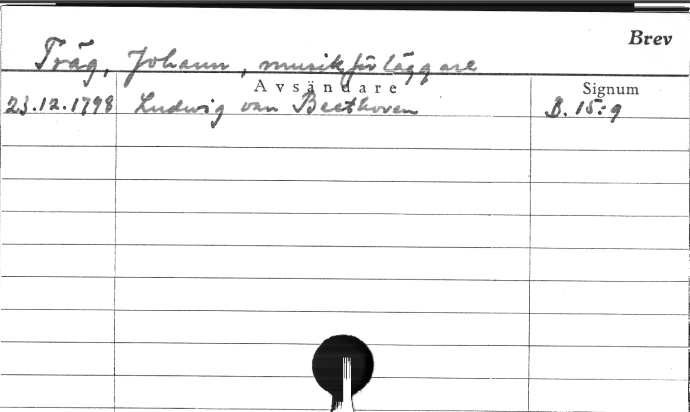 Brev
Träg, Johann, musikförläggare
Avsändare Signum
23.12.1798 Ludwig van Beethoven B. 15:9